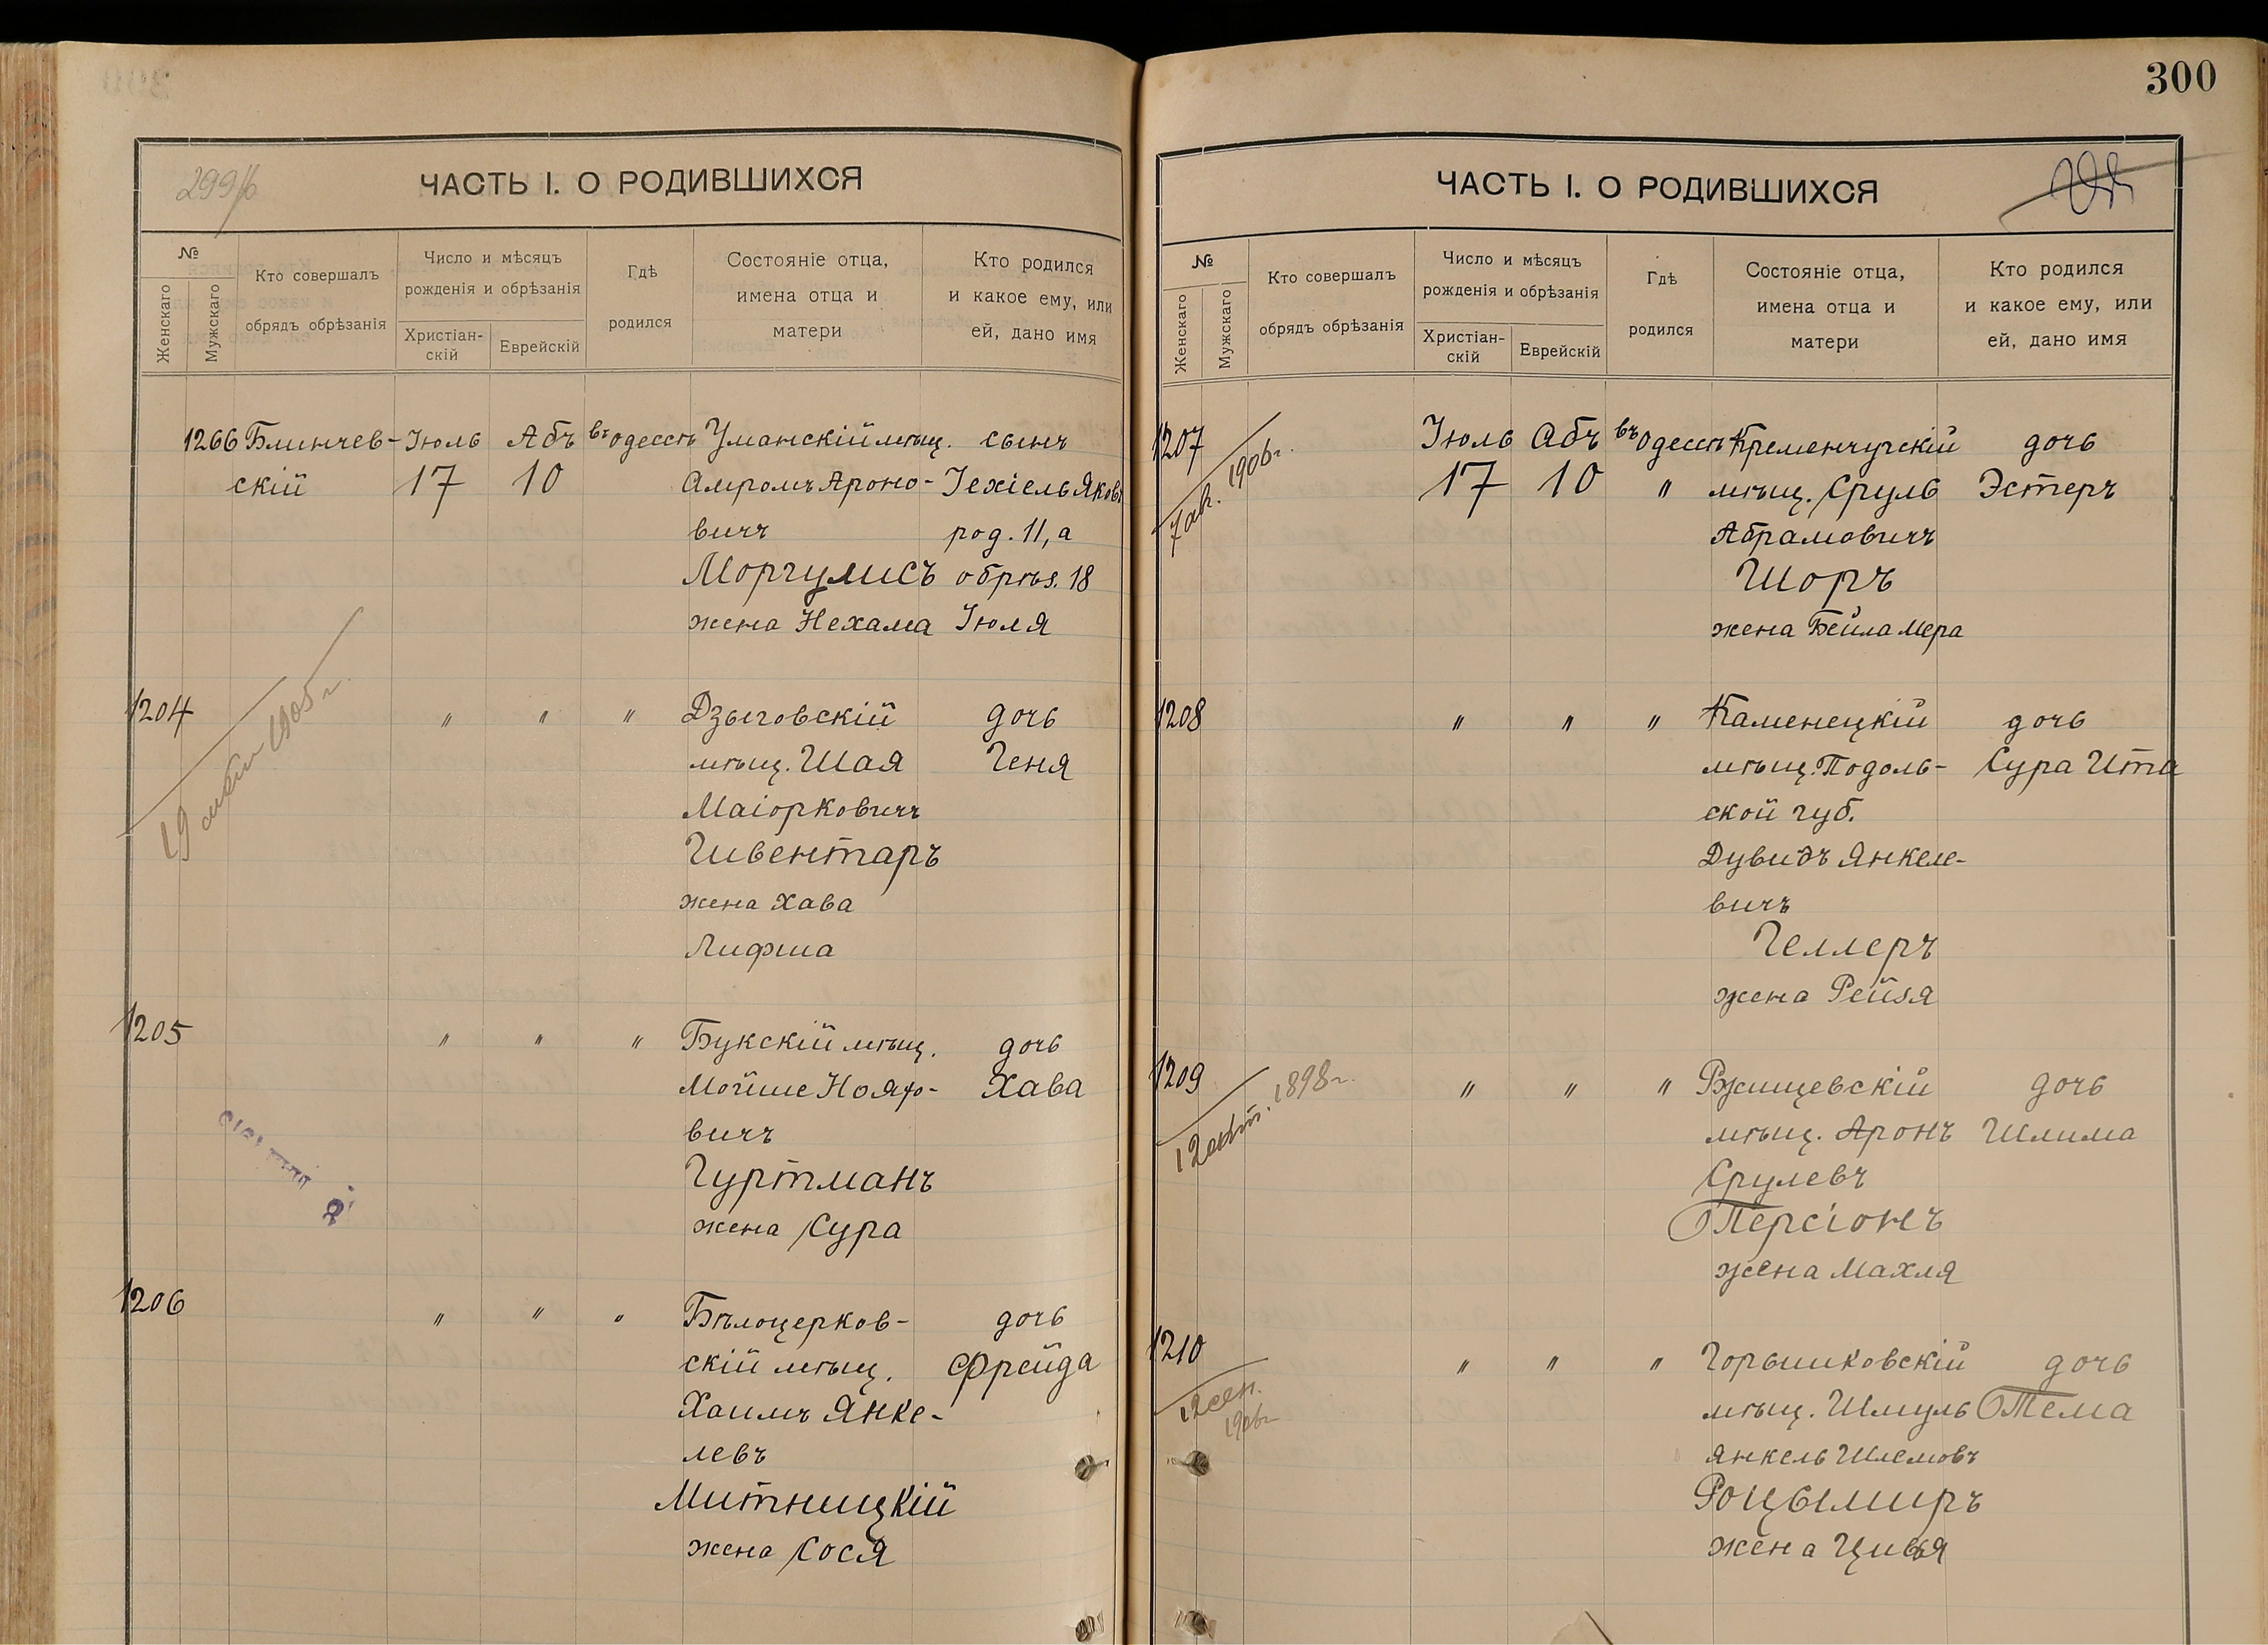 300
299/б
ЧАСТЬ I. О РОДИВШИХСЯ
№
Женскаго
Мужскаго
Кто совершалъ
обрядъ обрѣзанія
Число и мѣсяцъ
рожденія и обрѣзанія
Христіан-
скій
Еврейскій
Гдѣ
родился
Состояніе отца,
имена отца и
матери
Кто родился
и какое ему, или
ей, дано имя
1266 Блинчев- Іюль Абъ въ Одессѣ Уманскій мѣщ. сынъ
скій 17 10 Амромъ Ароно- Іехіель Яковъ
вичъ род. 11, а
Моргулисъ обрѣз. 18
жена Нехама Іюля
1204 " " " Дзыговскій дочь
мѣщ. Шая Геня
Маіорковичъ
Гивентаръ
жена Хава
Лифша
19 1905 г.
1205 " " " Букскій мѣщ. дочь
Мойше Нояхо- Хава
вичъ
Гуртманъ
жена Сура
1206 " " " Бѣлоцерков- дочь
скій мѣщ. Фрейда
Хаимъ Янке-
левъ
Митницкій
жена Сося
ЧАСТЬ I. О РОДИВШИХСЯ
№
Женскаго
Мужскаго
Кто совершалъ
обрядъ обрѣзанія
Число и мѣсяцъ
рожденія и обрѣзанія
Христіан-
скій
Еврейскій
Гдѣ
родился
Состояніе отца,
имена отца и
матери
Кто родился
и какое ему, или
ей, дано имя
1207 Іюль Абъ въ Одессѣ Кременчугскій дочь
17 10 " мѣщ. Сруль Эстеръ
Абрамовичъ
Шоръ
жена Бейла Мера
7 ав. 1906 г.
1208 " " " Каменецкій дочь
мѣщ. Подоль- Сура Ита
ской губ.
Дувидъ Янкеле-
вичъ
Геллеръ
жена Рейзя
1209 " " " Ржищевскій дочь
мѣщ. Аронъ Шлима
Срулевъ
Персіонъ
жена Махля
12 1898 г.
1210 " " " Горышковскій дочь
мѣщ. Шмуль Тема
Янкель Шлемовъ
Роцымиръ
жена Цивья
12 сен.
1906 г